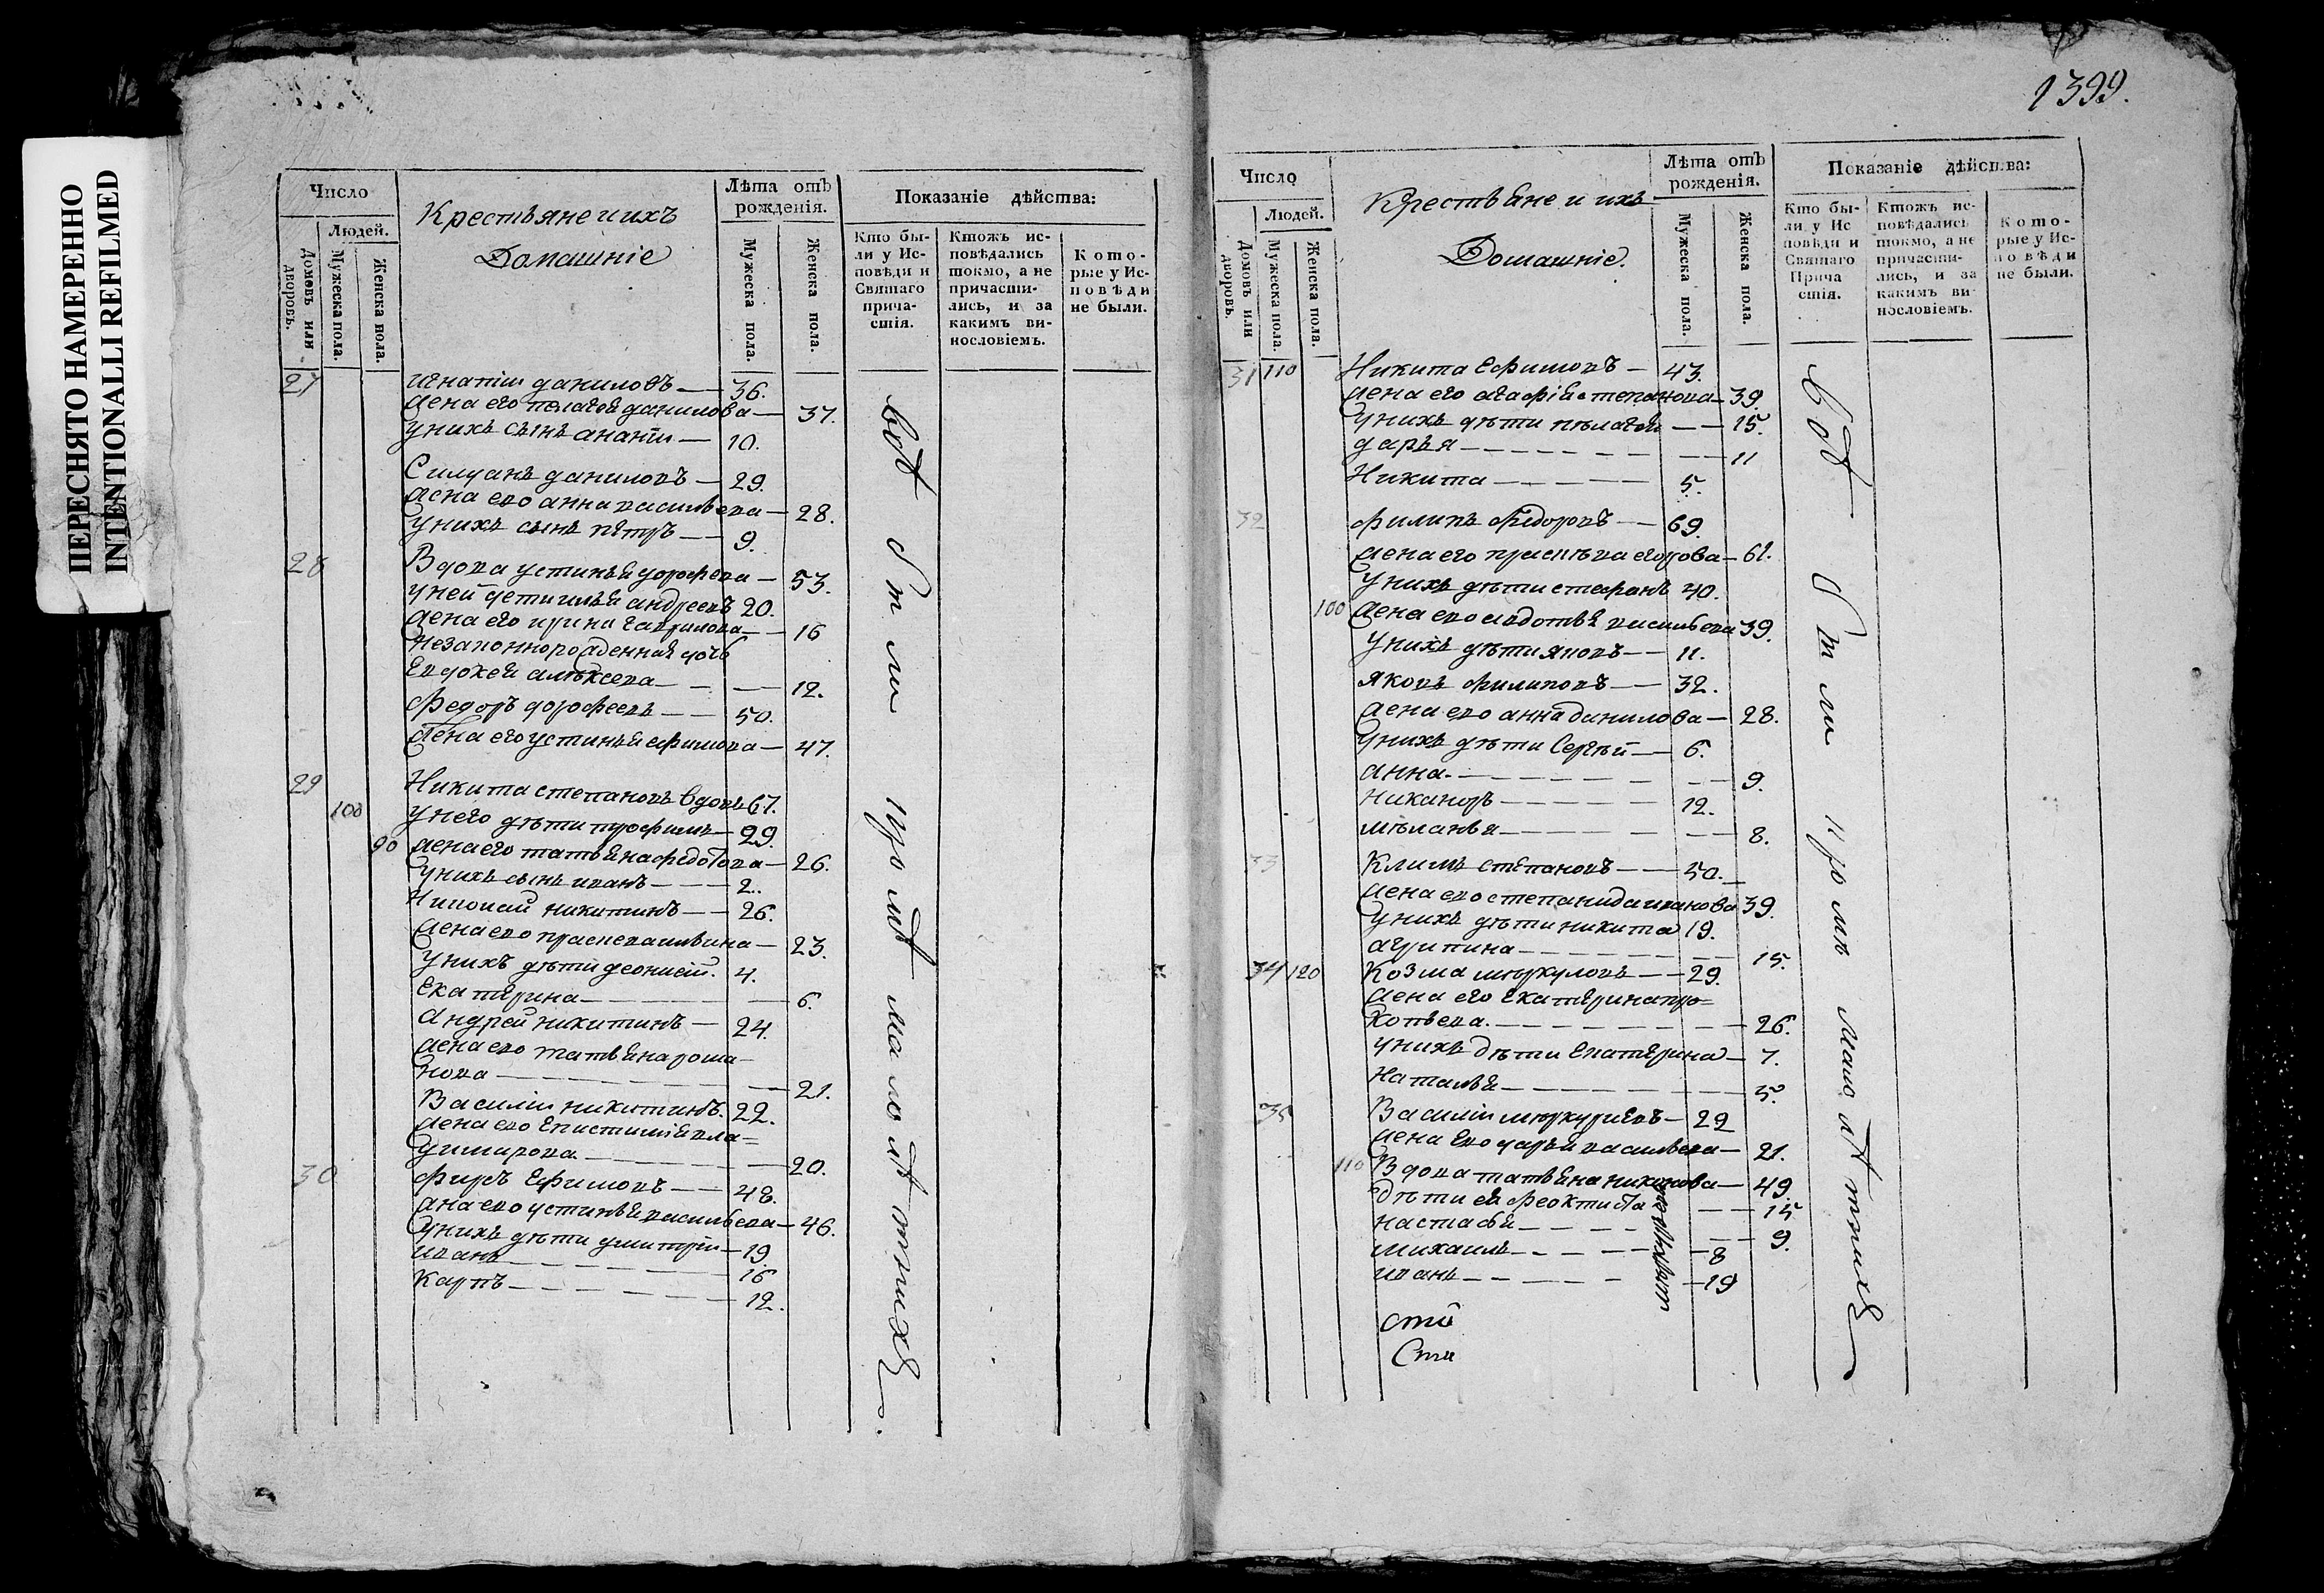 ПЕРЕСНЯТО НАМЕРЕННО
INTENTIONALLI REFILMED
Число
Людей.
Домовъ или дворовъ.
Мужеска пола.
Женска пола.
Крестьяне и ихъ
Домашніе
Лѣта отъ рожденія.
Мужеска пола.
Женска пола.
Показаніе дѣйства:
Кто бы-
ли у Ис-
повѣди и
Святаго
прича-
стія.
Ктожъ ис-
повѣдались
токмо, а не
причасти-
лись, и за
какимъ ви-
нословіемъ.
Кото-
рые у Ис-
повѣди
не были.
27 игнатіи даниловъ — 36.
жена его пелагея данилова — 37.
у нихъ сынъ ананіи — 10.
Силуанъ даниловъ — 29.
жена ево анна васильева — 28.
у нихъ сынъ петръ — 9.
28 Вдова устинья дорофева — 53.
у ней дети илья андреевъ 20.
жена его ирина гаврилова — 16
незаконнорожденная дочь
Евдокея алексеева — 12.
Федоръ дорофеевъ — 50.
жена его устинья ефимова — 47.
29 Никита степановъ вдовъ 67.
100 у него дѣти трофимъ — 29.
90 жена его татьяна федотова — 26.
у нихъ сынъ иванъ — 2.
Николай никитинъ — 26.
жена ево — 23.
у нихъ дѣти деонисій. 4.
Екатерина — 6.
Андрей никитинъ — 24.
жена ево татьяна рома-
нова — 21.
Василіи никитинъ. 22.
жена ево Епистимія вла=
димирова — 20.
30 Фирсъ Ефимовъ — 48.
жена ево устинья васильева — 46.
у нихъ дѣти димитріи — 19.
иванъ — 16
Карпъ — 12.
всѣ были кромѣ малолѣтнихъ
1399.
Число
Людей.
Домовъ или дворовъ.
Мужеска пола.
Женска пола.
Крестьяне и ихъ
Домашніе.
Лѣта отъ рожденія.
Мужеска пола.
Женска пола.
Показаніе дѣйства:
Кто бы-
ли у Ис
повѣди и
Святаго
Прича
стія.
Ктожъ ис-
повѣдались
токмо, а не
причасти-
лись, и за
какимъ ви-
нословіемъ.
Кото-
рые у Ис-
повѣди
не были.
31 110 Никита Ефимовъ — 43.
жена его агафія степанова — 39.
у нихъ дѣти пелагея — 15.
дарья — 11
Никита — 5.
32 филипъ федоровъ — 69.
жена его егорова — 61.
у нихъ дѣти стефанъ 40.
100 жена ево авдотья васильева 39.
у нихъ дѣти яковъ — 11.
яковъ филиповъ — 32.
жена ево анна данилова — 28.
у нихъ дѣти Сергѣй — 6.
анна — 9.
никаноръ — 12.
меланья — 8.
33 Климъ степановъ — 50.
жена ево степанида иванова 39.
у нихъ дѣти никита 19.
агрипина — 15.
34 120 Козма меркуловъ — 29.
жена его Екатерина про=
копьева. — 26.
у нихъ дѣти Екатерина — 7.
Наталья — 5.
35 Василіи меркуриевъ — 22
жена Ево дарья васильева — 21.
110 Вдова татьяна никонова — 49.
дѣти ея феоктиста — 15
настасья — 9.
михаилъ — 8
иванъ — 19
всѣ были кромѣ малолѣтнихъ